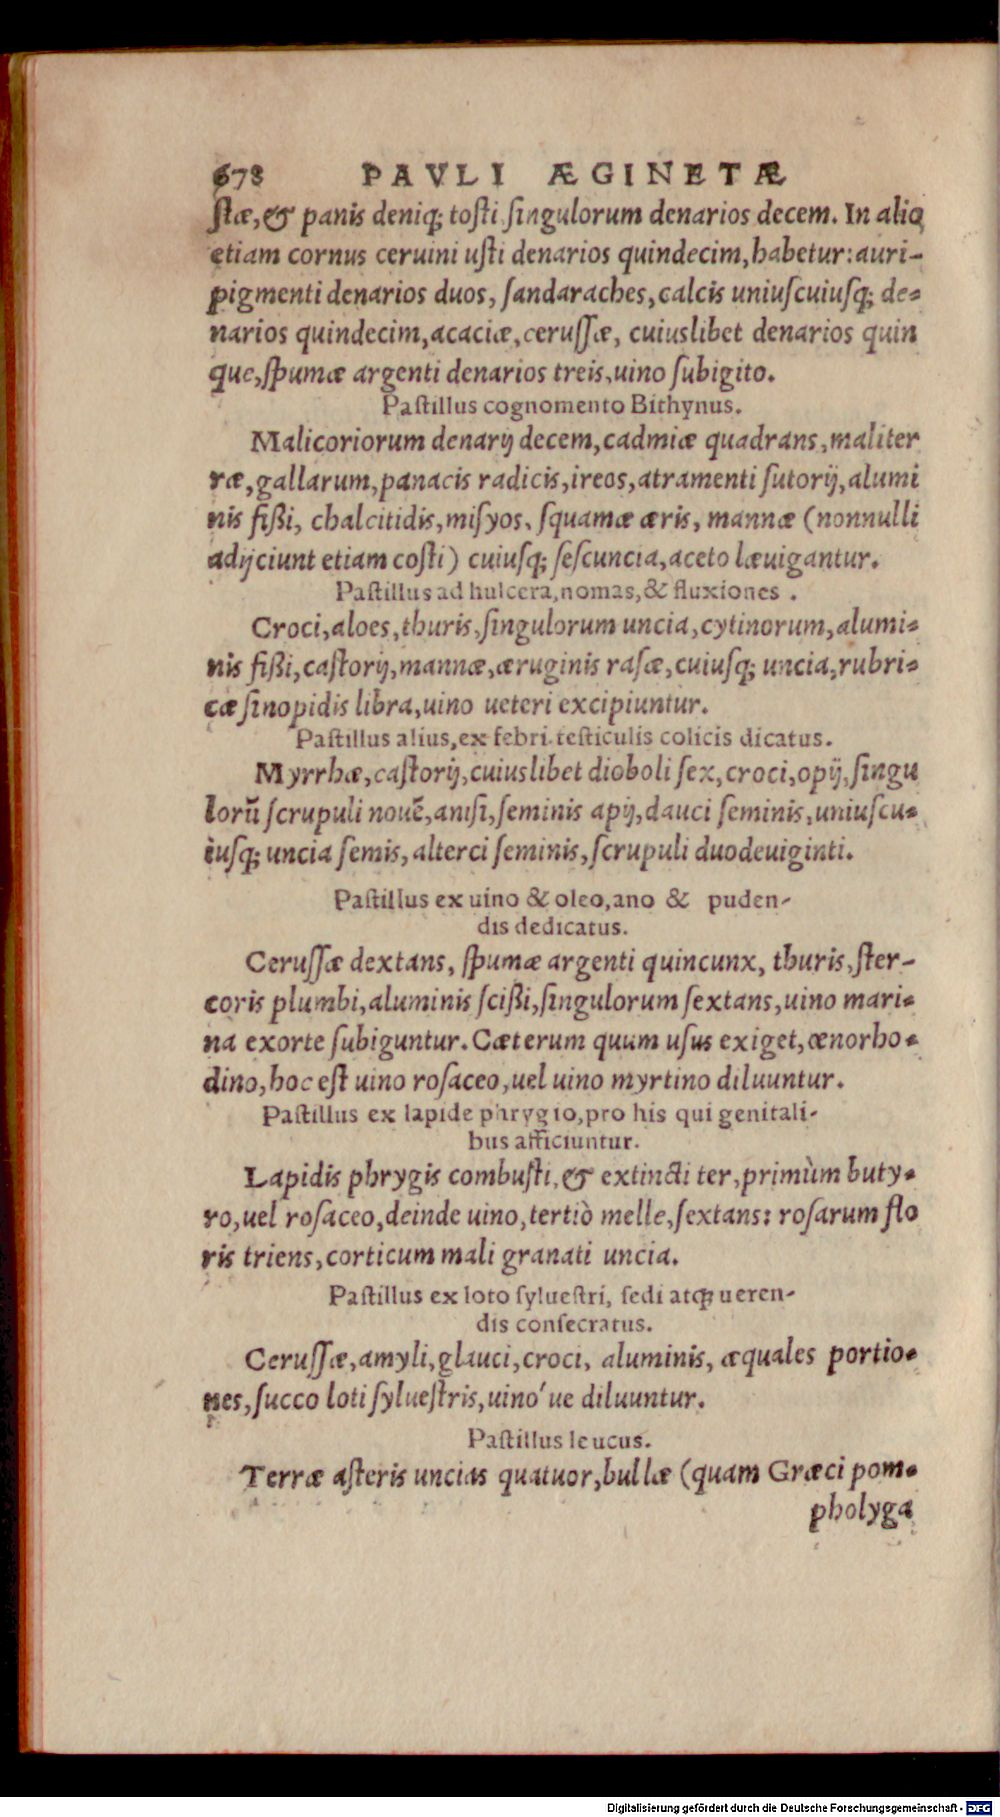 678 PAVLI ÆGINETÆ
ſtæ, & panis deniq; toſti ſingulorum denarios decem. In aliq
etiam cornus ceruini uſti denarios quindecim, habetur: auri-
pigmenti denarios duos, ſandaraches, calcis uniuſcuiuſq; de-
narios quindecim, acaciæ, ceruſſæ, cuiuslibet denarios quin
que, ſpumæ argenti denarios treis, uino ſubigito.
Paſtillus cognomento Bithynus.
Malicoriorum denarij decem, cadmiæ quadrans, maliter
ræ, gallarum, panacis radicis, ireos, atramenti ſutorij, alumi
nis fißi, chalcitidis, miſyos, ſquamæ æris, mannæ (nonnulli
adijciunt etiam coſti) cuiuſq; ſeſcuncia, aceto læuigantur.
Paſtillus ad hulcera, nomas, & fluxiones.
Croci, aloes, thuris, ſingulorum uncia, cytinorum, alumi-
nis fißi, caſtorij, mannæ, æruginis raſæ, cuiuſq; uncia, rubri-
cæ ſinopidis libra, uino ueteri excipiuntur.
Paſtillus alius, ex febri teſticulis colicis dicatus.
Myrrhæ, caſtorij, cuiuslibet dioboli ſex, croci, opij, ſingu
lorũ ſcrupuli nouẽ, aniſi, ſeminis apij, dauci ſeminis, uniuſcu-
iuſq; uncia ſemis, alterci ſeminis, ſcrupuli duodeuiginti.
Paſtillus ex uino & oleo, ano & puden-
dis dedicatus.
Ceruſſæ dextans, ſpumæ argenti quincunx, thuris, ſter-
coris plumbi, aluminis ſcißi, ſingulorum ſextans, uino mari-
na exorte ſubiguntur. Cæterum quum uſus exiget, œnorho-
dino, hoc eſt uino roſaceo, uel uino myrtino diluuntur.
Paſtillus ex lapide phrygio, pro his qui genitali-
bus afficiuntur.
Lapidis phrygis combuſti, & extincti ter, primùm buty-
ro, uel roſaceo, deinde uino, tertiò melle, ſextans: roſarum flo
ris triens, corticum mali granati uncia.
Paſtillus ex loto ſylueſtri, ſedi atq; ueren-
dis conſecratus.
Ceruſſæ, amyli, glauci, croci, aluminis, æquales portio-
nes, ſucco loti ſylueſtris, uino ́ue diluuntur.
Paſtillus leucus.
Terræ aſteris uncias quatuor, bullæ (quam Græci pom-
pholyga
Digitalisierung gefördert durch die Deutsche Forschungsgemeinschaft - DFG